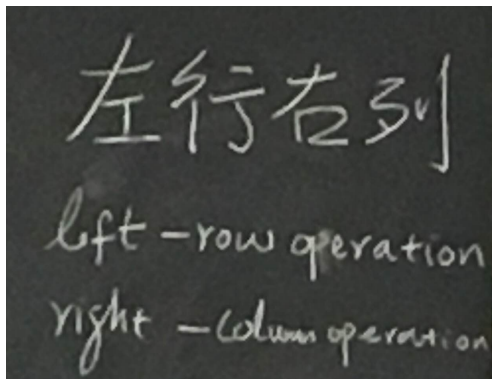 左行右列
left - row operation
right - column operation